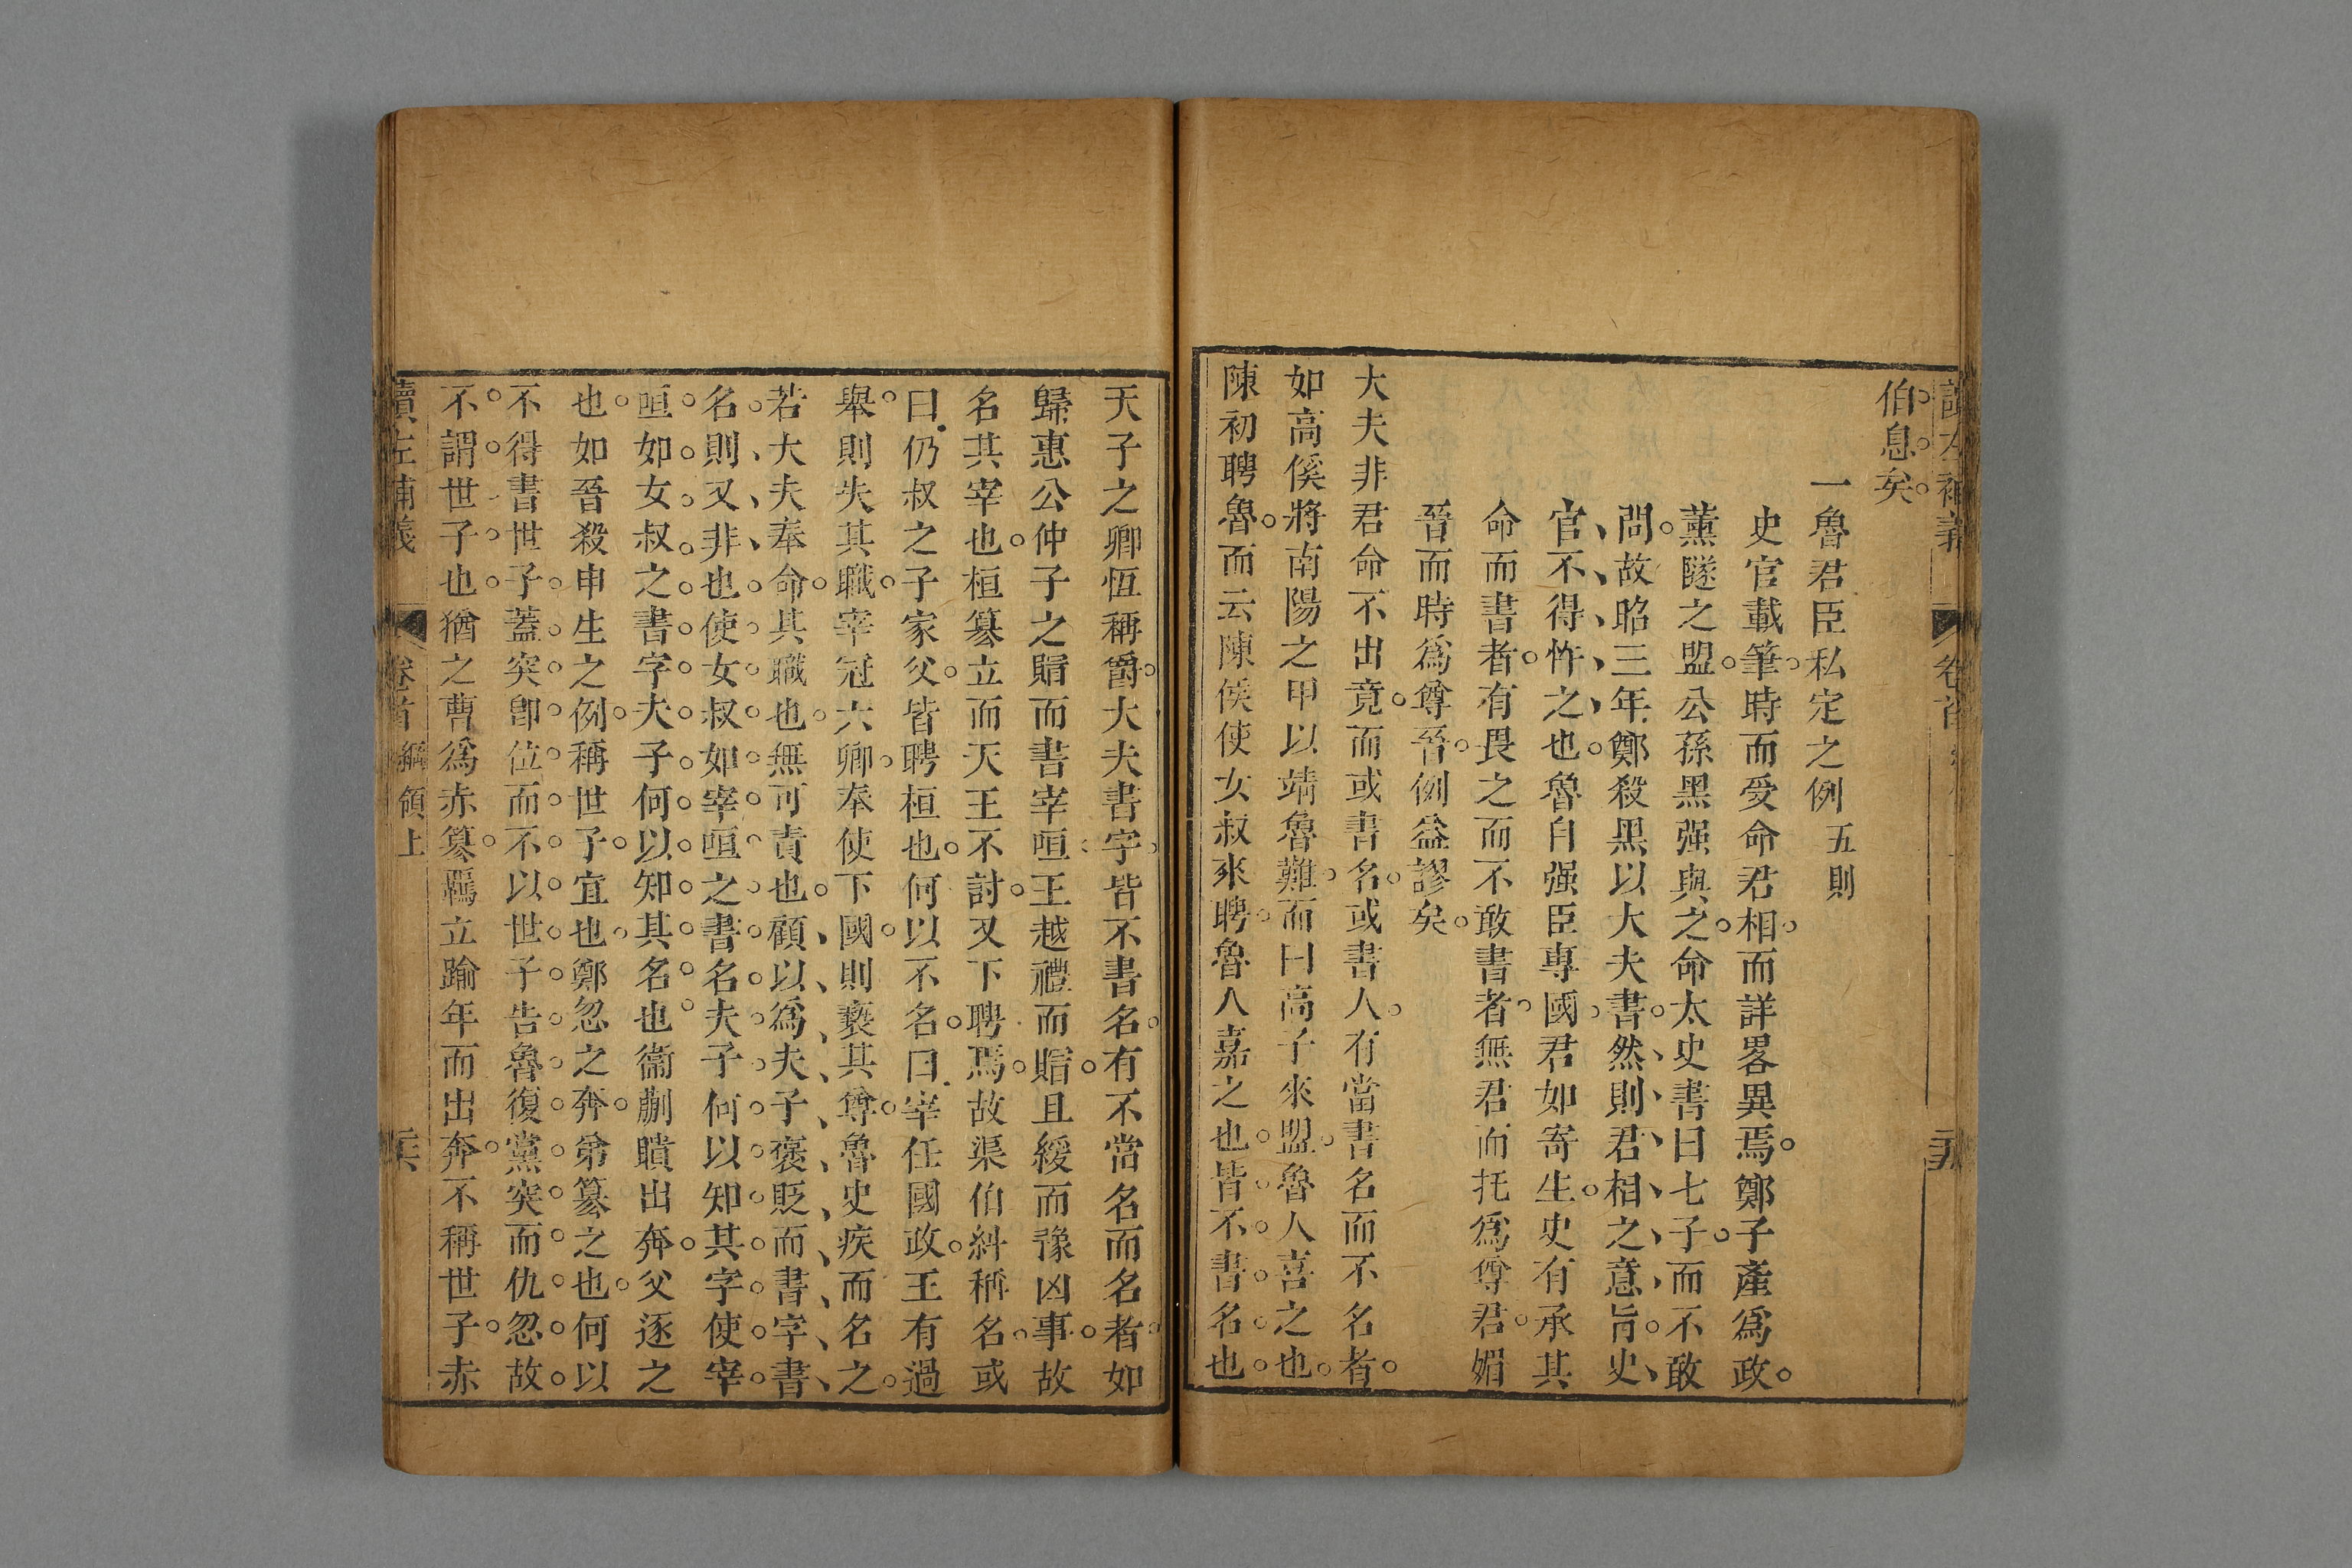 讀左補義 卷首
伯息矣
一魯君臣私定之例 五則
史官載筆時而受命君相而詳畧異焉鄭子產爲政
薰隧之盟公孫黑强與之命太史書曰七子而不敢
問故昭三年鄭殺黑以大夫書然則君相之意旨史
官不得怍之也魯自强臣專國君如寄生史有承其
命而書者有畏之而不敢書者無君而托爲尊君媚
晉而時爲尊晉例益謬矣
大夫非君命不出竟而或書名或書人有當書名而不名者
如高傒將南陽之甲以靖魯難而曰高子來盟魯人喜之也
陳初聘魯而云陳侯使女叔來聘魯人嘉之也皆不書名也
天子之卿恆稱爵大夫書字皆不書名有不當名而名者如
歸惠公仲子之賵而書宰咺王越禮而賵且緩而豫凶事故
名其宰也桓簒立而天王不討又下聘焉故渠伯糾稱名或
曰仍叔之子家父皆聘桓也何以不名曰宰任國政王有過
舉則失其職宰冠六卿奉使下國則褻其尊魯史疾而名之
若大夫奉命其職也無可責也顧以爲夫子褒貶而書字書
名則又非也使女叔如宰咺之書名夫子何以知其字使宰
咺如女叔之書字夫子何以知其名也衞蒯聵出奔父逐之
也如晉殺申生之例稱世子宜也鄭忽之奔弟簒之也何以
不得書世子蓋突卽位而不以世子告魯復黨突而仇忽故
不謂世子也猶之曹爲赤簒羈立踰年而出奔不稱世子赤
讀左補義 卷首 綱領上